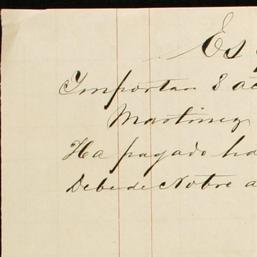 Es
Importan 8 ac
Martinez
Ha pagado ha
Debe de Nobre a